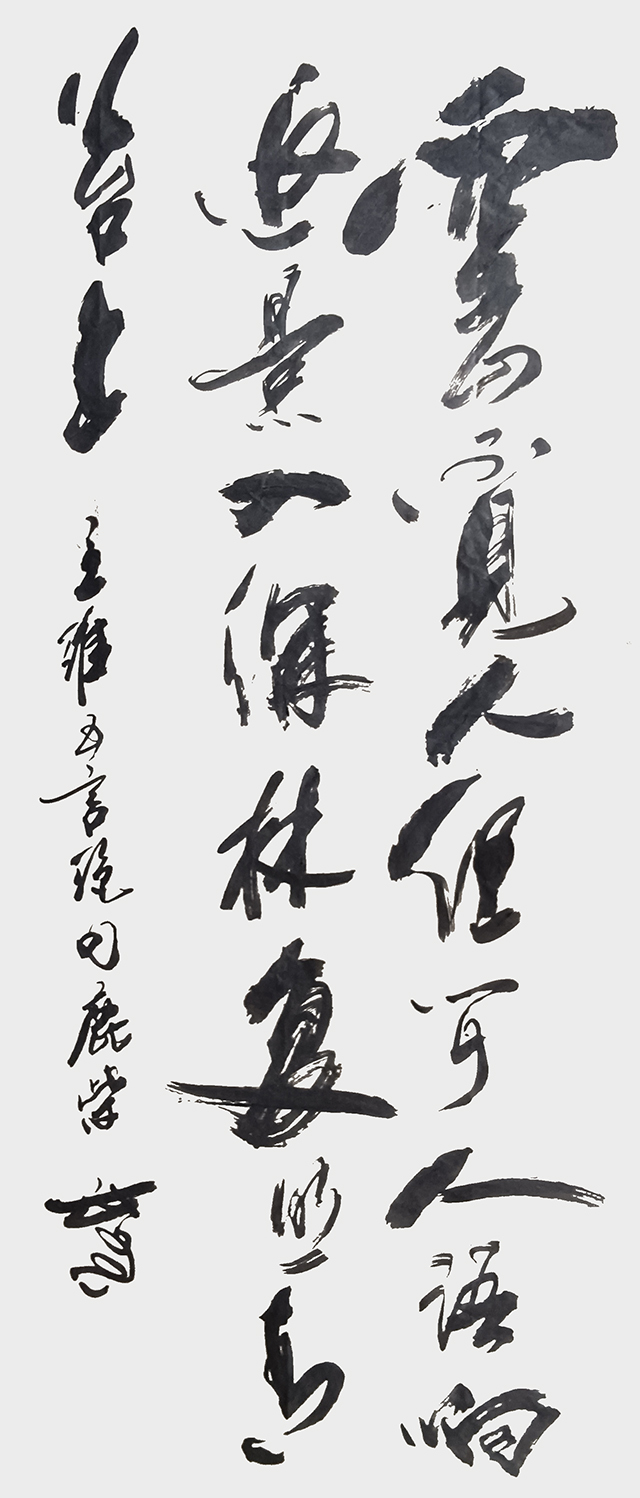 空山不見人但聞人語响
返景入深林复照青
苔上 王維五言絕句鹿柴